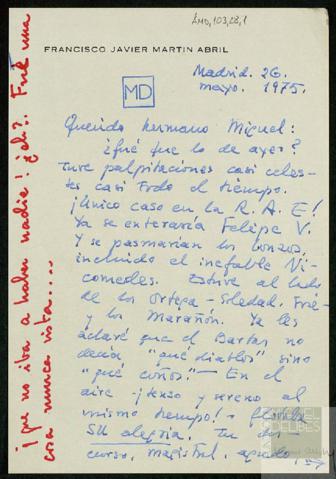 AMD, 103, 28, 1
FRANCISCO JAVIER MARTIN ABRIL
Madrid. 26.
mayo. 1975.
MD
Querido hermano Miguel:
¿Qué fue lo de ayer?
Tuve palpitaciones casi celes-
tes, casi todo el tiempo.
¡Único caso en la R. A. E!
Ya se enteraría Felipe V.
Y se pasmarían los bonzos,
incluido el inefable Ni-
comedes. Estuve al lado
de los Ortega - Soledad,
y los Marañón. Ya les
aclaré que el
decía "qué diablos" sino
"qué coños". - En el
aire ¡tenso y sereno al
mismo tiempo! -
su alegría. Tu dis-
curso, magistral, agudo,
¡que no iba a haber nadie! ¿eh?. Fué una
cosa nunca vista....
MIGUEL
DELIBES